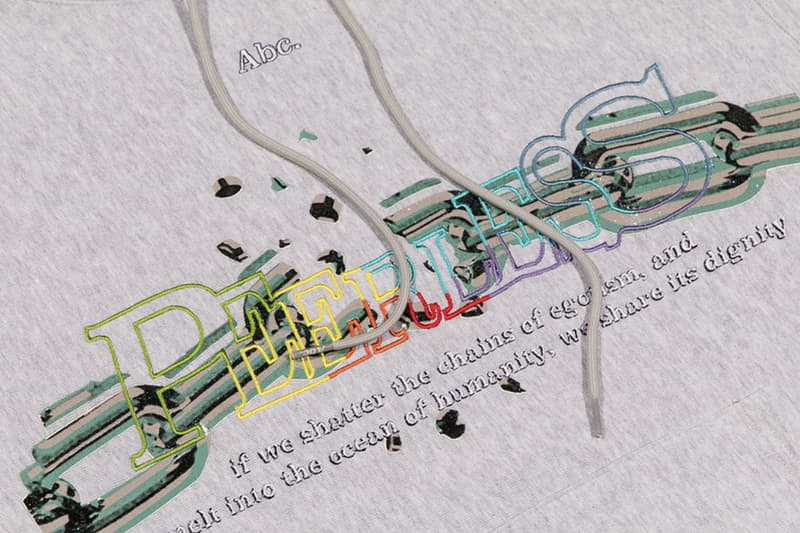 Abc.
PEERLESS
if we shatter the chains of egotism, and
melt into the ocean of humanity, we share its dignity